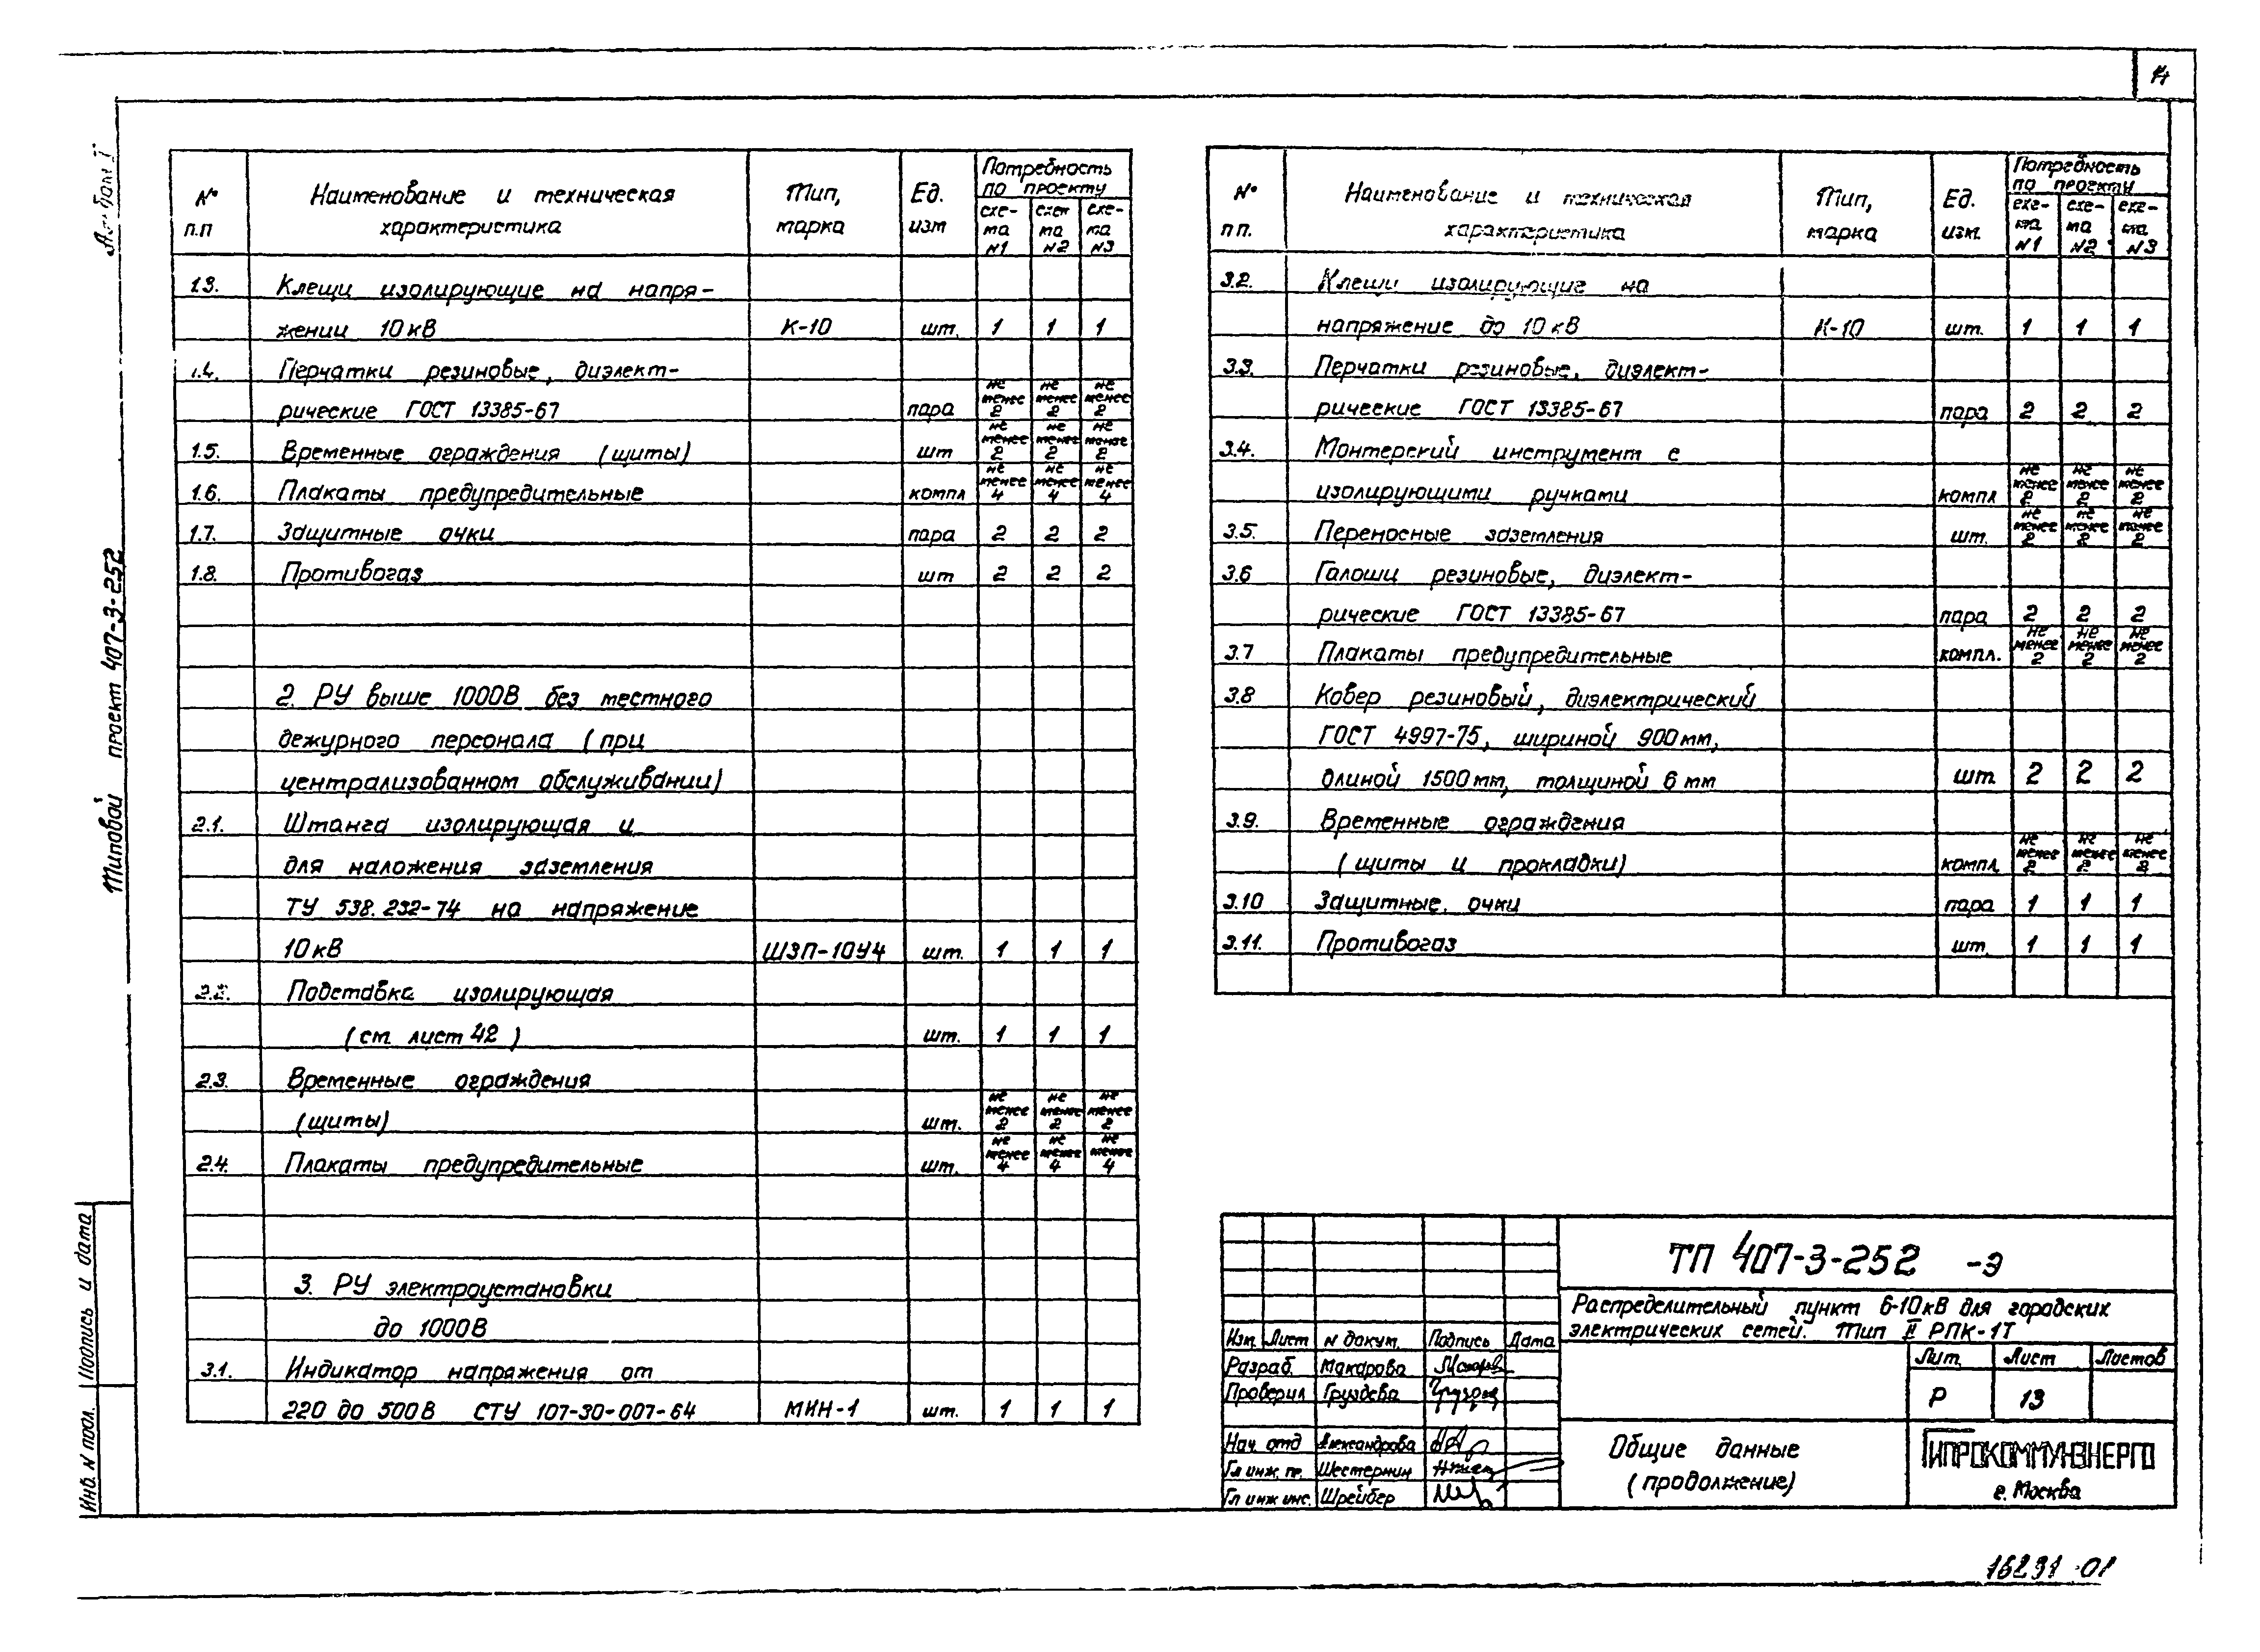 Альбом I
Типовой проект 407-3-252
Подпись и дата
Инв. N подл.
№ п.п
Наименование и техническая характеристика
Тип, марка
Ед. изм
Потребность по проекту
схе-ма N1
схем ма N2
схе-ма N3
1.3. Клещи изолирующие на напря-
жении 10 кВ К-10 шт. 1 1 1
1.4. Перчатки резиновые, диэлект-
рические ГОСТ 13385-67 пара не менее 2 не менее 2 не менее 2
1.5. Временные ограждения (щиты) шт не менее 2 не менее 2 не менее 2
1.6. Плакаты предупредительные компл не менее 4 не менее 4 не менее 4
1.7. Защитные очки пара 2 2 2
1.8. Противогаз шт 2 2 2
2. РУ выше 1000В без местного
дежурного персонала (при
централизованном обслуживании)
2.1. Штанга изолирующая и
для наложения заземления
ТУ 538.232-74 на напряжение
10 кВ ШЗП-10У4 шт. 1 1 1
2.2. Подставка изолирующая
(см. лист 42) шт. 1 1 1
2.3. Временные ограждения
(щиты) шт. не менее 2 не менее 2 не менее 2
2.4. Плакаты предупредительные шт. не менее 4 не менее 4 не менее 4
3. РУ электроустановки
до 1000В
3.1. Индикатор напряжения от
220 до 500В СТУ 107-30-007-64 МИН-1 шт. 1 1 1
№ пп.
Наименование и техническая характеристика
Тип, марка
Ед. изм.
Потребность по проекту
схе-ма N1
схе-ма N2
схе-ма N3
3.2. Клещи изолирующие на
напряжение до 10 кВ К-10 шт. 1 1 1
3.3. Перчатки резиновые, диэлект-
рические ГОСТ 13385-67 пара 2 2 2
3.4. Монтерский инструмент с
изолирующими ручками компл не менее 2 не менее 2 не менее 2
3.5. Переносные заземления шт. не менее 2 не менее 2 не менее 2
3.6 Галоши резиновые, диэлект-
рические ГОСТ 13385-67 пара 2 2 2
3.7 Плакаты предупредительные компл. не менее 2 не менее 2 не менее 2
3.8 Ковер резиновый, диэлектрический
ГОСТ 4997-75, шириной 900 мм,
длиной 1500 мм, толщиной 6 мм шт 2 2 2
3.9. Временные ограждения
(щиты и прокладки) компл. не менее 2 не менее 2 не менее 2
3.10 Защитные очки пара 1 1 1
3.11. Противогаз шт. 1 1 1
ТП 407-3-252 -Э
Распределительный пункт 6-10 кВ для городских
электрических сетей. Тип II РПК-1Т
Изм. Лист N докум. Подпись Дата
Разраб. Макарова
Проверил Груздева
Нач. отд Александрова
Гл инж. пр. Шестернин
Гл инж инс. Шрейбер
Лит. Лист Листов
Р 13
Общие данные
(продолжение)
ГИПРОКОММУНЭНЕРГО
г. Москва
16291-01